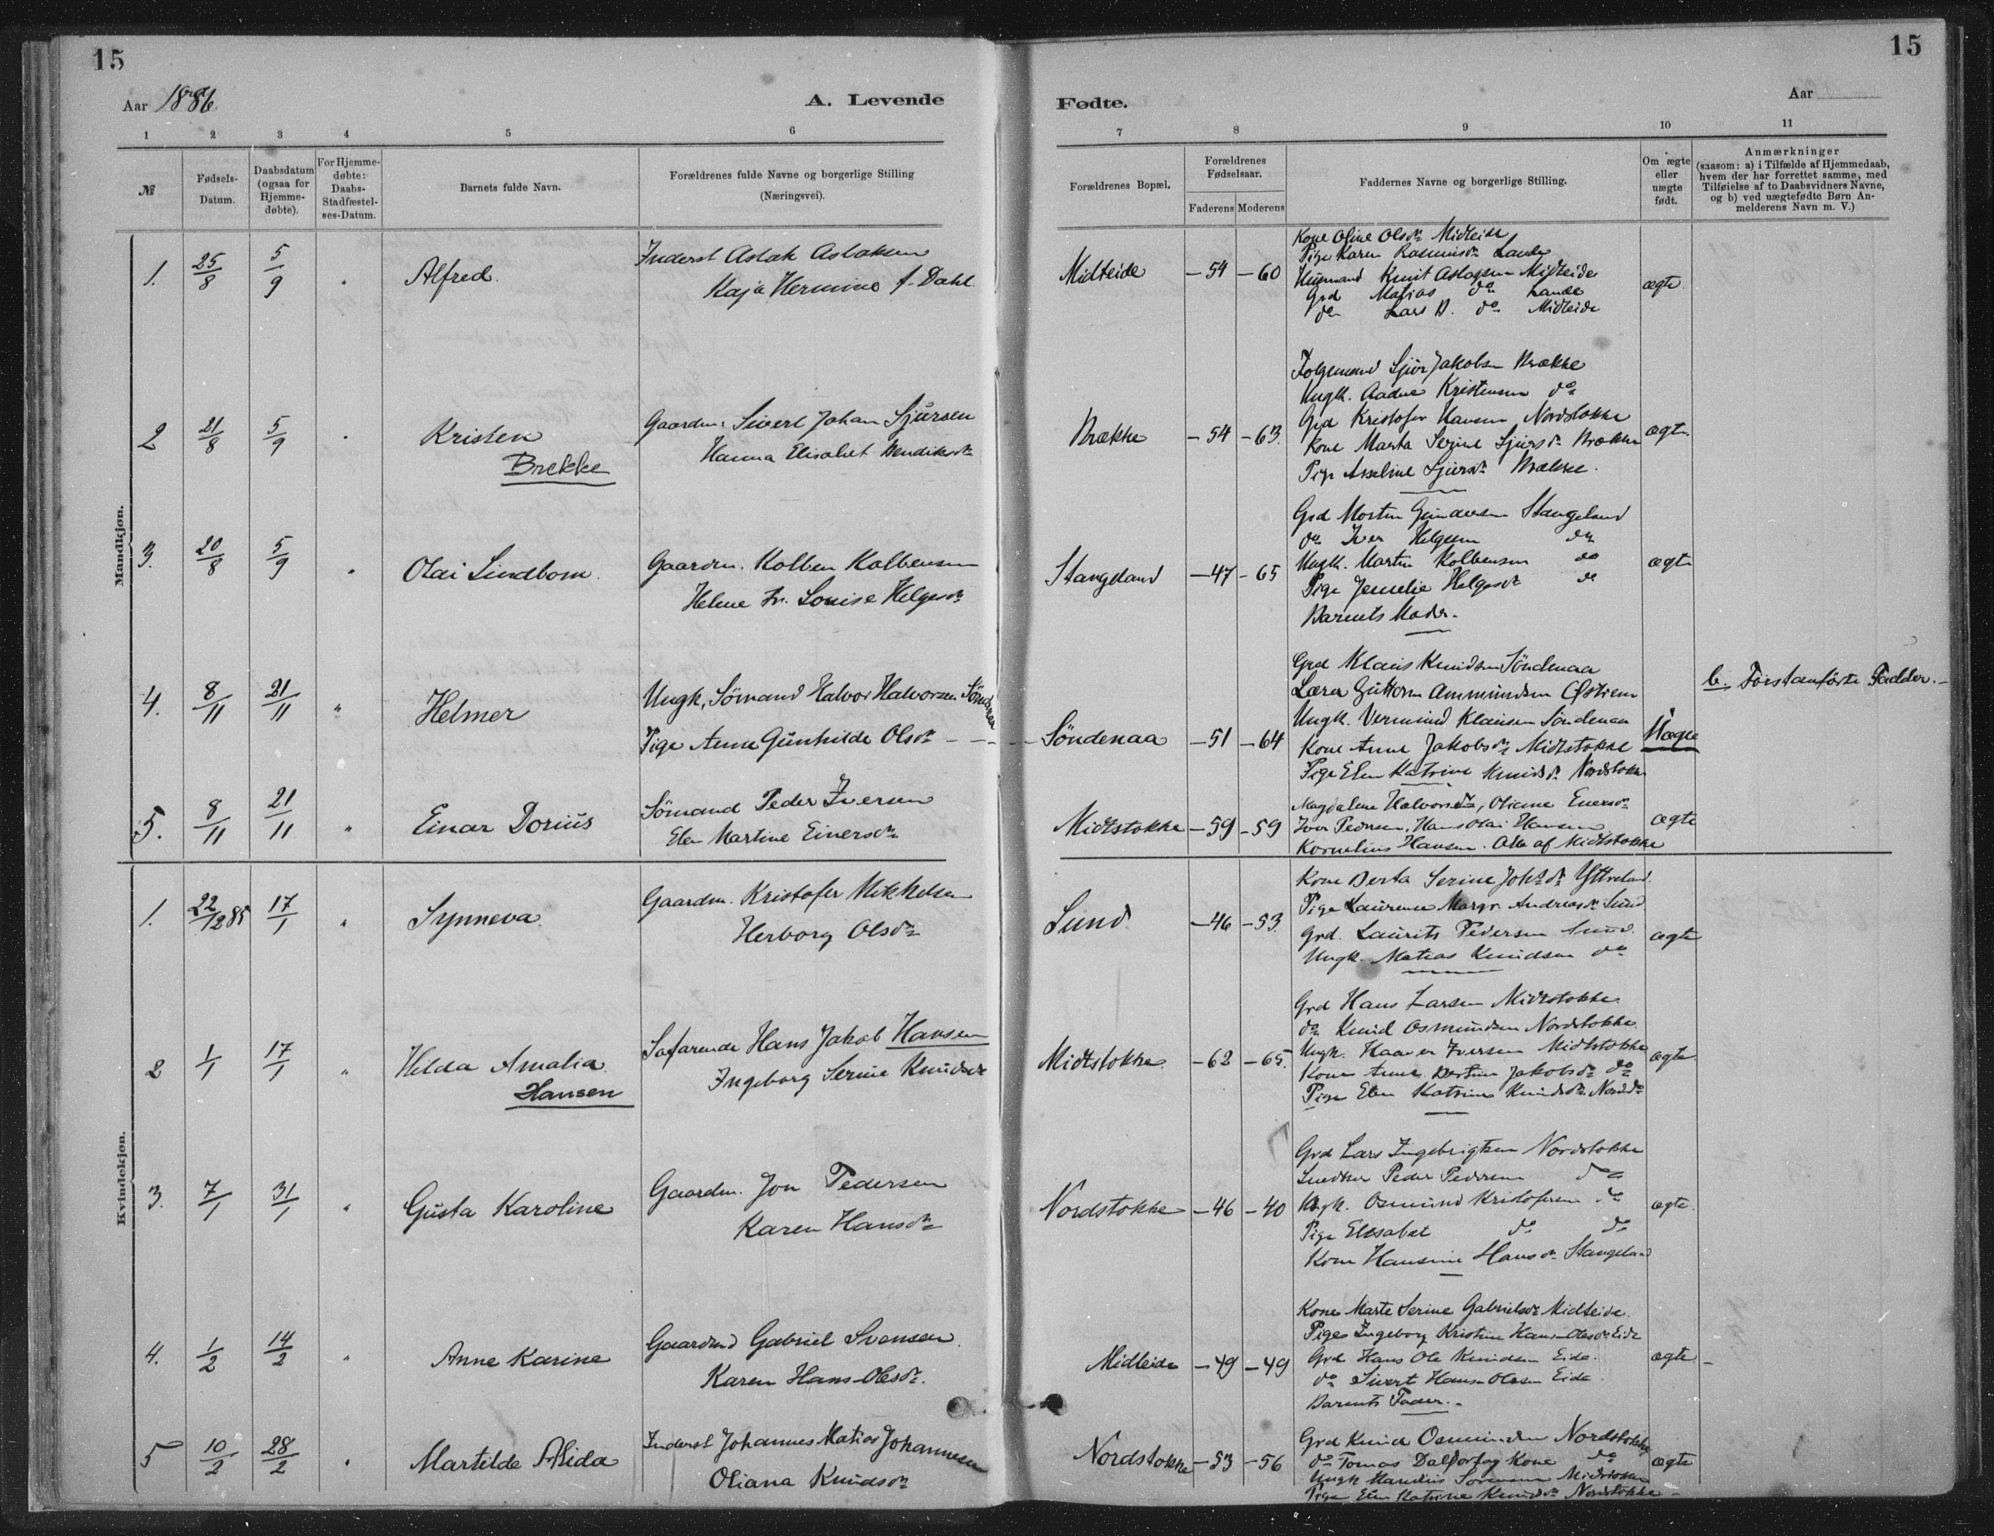 15
15
Aar 1886.
A. Levende
Fødte.
Aar
1 2 3 4 5 6 7 8 9 10 11
№
Fødsels-
Datum.
Daabsdatum
(ogsaa for
Hjemme-
døbte).
For Hjemme-
døbte:
Daabs-
Stadfæstel-
ses-Datum.
Barnets fulde Navn.
Forældrenes fulde Navne og borgerlige Stilling
(Næringsvei).
Forældrenes Bopæl.
Forældrenes
Fødselsaar.
Faderens Moderens
Faddernes Navne og borgerlige Stilling.
Om ægte
eller
uægte
født.
Anmærkninger
(saasom: a) i Tilfælde af Hjemmedaab,
hvem der har forrettet samme, med
Tilføielse af to Daabsvidners Navne,
og b) ved uægtefødte Børn An-
melderens Navn m. V.)
Mandkjøn.
1. 25/8 5/9 " Alfred.
Inderst Aslak Aslaksen
Kaja Hermine f. Dahl
Midteide - 54 - 60
Kone Oline Olsdr Midteide
Pige Karen Rasmusdr Lande
Husmand Knut Aslagsen Midteide
Grd Matias do Lande
do Lars B. do Midteide
ægte
2 21/8 5/9 " Kristen
Brekke
Gaardm. Sivert Johan Sjursen
Hanna Elisabet Hendiksdr
Brække - 54 - 63.
Folgemand Sjur Jakobsen Brække
Ungk. Aadne Kristensen do
Grd Kristofer Hansen Nordstokke
Kone Marta Serine Sjursdr Brække
Pige Asseline Sjursdr Brække.
ægte
3. 20/8 5/9 " Olai Lindbom.
Gaardm. Kolben Kolbensen
Helene Fr. Louise Helgesdr
Stangeland - 47 - 65
Grd Morten Gundersen Stangeland
do Iver Helgesen do
Ungk. Martin Kolbensen do
Pige Jenselie Helgesdr do
Barnets Moder.
ægte
4. 8/11 21/11 " Helmer
Ungk. Sømand Halvor Halvorsen Söndenaa
Pige Anne Gunhilde Olsdr - - -
Söndenaa - 51 - 64
Grd Klaus Knudsen Söndenaa
Lærer Guttorm Ammundsen Østrem
Ungk. Vermund Klausen Söndenaa
Kone Anne Jakobsdr Midtstokke
Pige Elen Katrine Knudsdr Nordstokke
Uægte
b. Förstanförte Fadder.
5. 8/11 21/11 " Einar Dorius
Sömand Peder Iversen
Elen Martine Einersdr
Midtstokke - 59 - 59
Magdalene Halvorsdr, Oliane Enersdr
Iver Pedersen, Hans Olai Hansen
Kornelius Hansen. Alle af Midtstokke
ægte
Kvindekjøn.
1. 22/12 85 17/1 " Synneva.
Gaardm. Kristofer Mikkelsen
Herborg Olsdr
Lund - 46 - 53.
Kone Berta Serine Johsdr Yttreland.
Pige Laurense Margr. Andreasdr Lund
Grd. Laurits Pedersen Lund.
Ungk. Matias Knudsen do
ægte
2 1/1 17/1 " Helda Amalia
Hansen
Søfarende Hans Jakob Hansen
Ingeborg Serine Knudsdr
Midtstokke - 62 - 65.
Grd Hans Larsen Midtstokke
do Knud Osmundsen Nordstokke
Ungk. Haaver Iversen Midtstokke
Kone Anne Bertine Jakobsdr do
Pige Elen Katrine Knudsdr Nordst
ægte
3. 7/1 31/1 " Gusta Karoline
Gaardm. Jon Pedersen
Karen Hansdr
Nordstokke - 46 - 40
Grd Lars Ingebrigtsen Nordstokke
Snedker Peder Pedersen do
Ungk. Osmund Kristofersen do
Pige Elesabet do do
Kone Hansine Hansdr Stangeland
ægte.
4. 1/2 14/2 " Anne Karine
Gaardmd Gabriel Svensen
Karen Hans-Olesdr.
Midteide - 49 - 49
Kone Marte Serine Gabrielsdr Midteide
Pige Ingeborg Kristine Hans-Olesdr Eide
Grd Hans Ole Knudsen Eide.
do Sivert Hans-Olesen Eide
Barnets Fader.
ægte
5 10/2 28/2 " Martilde Alida
Inderst Johannes Matias Johannesen
Oliana Knudsdr
Nordstokke - 53 - 56
Grd Knud Osmundsen Nordstokke
do Tomas Dalforf og Kone do
Ungk Haktius Sørensen Midstokke
Pige Elen Katrine Knudsdr Nordstokke
ægte